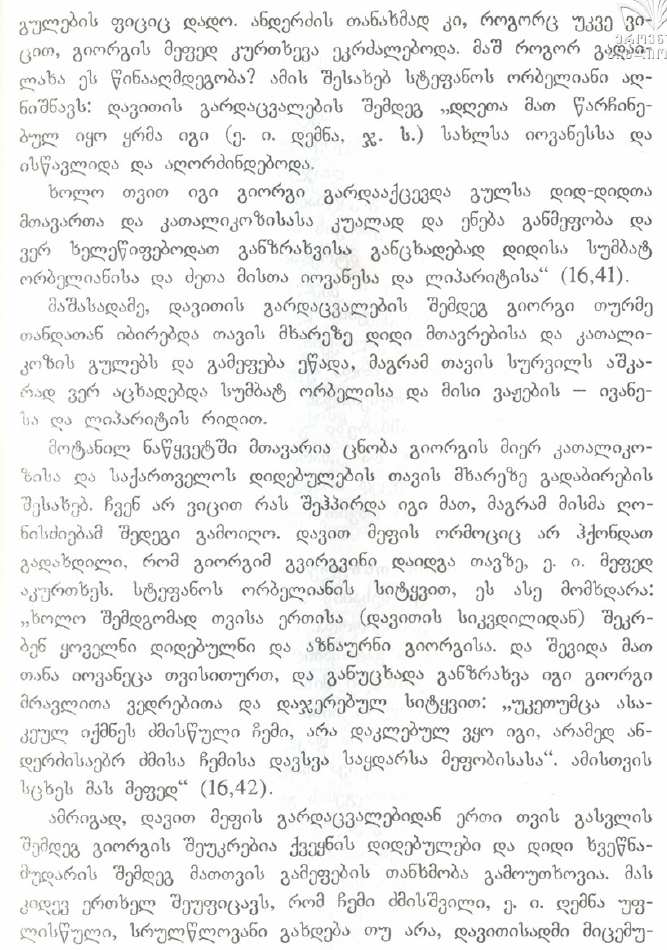 გულების ფიციც დადო. ანდერძის თანახმად კი, როგორც უკვე ვი-
ცით, გიორგის მეფედ კურთხევა ეკრძალებოდა. მაშ როგორ გადაი-
ლახა ეს წინააღმდეგობა? ამის შესახებ სტეფანოს ორბელიანი აღ-
ნიშნავს: დავითის გარდაცვალების შემდეგ „დღეთა მათ წარჩინე-
ბულ იყო ყრმა იგი (ე. ი. დემნა, ჯ. ს.) სახლსა იოვანესსა და
ისწავლიდა და აღორძინდებოდა.
ხოლო თვით იგი გიორგი გარდააქცევდა გულსა დიდ-დიდთა
მთავართა და კათალიკოზისასა კუალად და ენება განმეფობა და
ვერ ხელეწიფებოდათ განზრახვისა განცხადებად დიდისა სუმბატ
ორბელიანისა და ძეთა მისთა იოვანესა და ლიპარიტისა“ (16,41).
მაშასადამე, დავითის გარდაცვალების შემდეგ გიორგი თურმე
თანდათან იბირებდა თავის მხარეზე დიდი მთავრებისა და კათალი-
კოზის გულებს და გამეფება ეწადა, მაგრამ თავის სურვილს აშკა-
რად ვერ აცხადებდა სუმბატ ორბელისა და მისი ვაჟების — ივანე-
სა და ლიპარიტის რიდით.
მოტანილ ნაწყვეტში მთავარია ცნობა გიორგის მიერ კათალიკო-
ზისა და საქართველოს დიდებულების თავის მხარეზე გადაბირების
შესახებ. ჩვენ არ ვიცით რას შეჰპირდა იგი მათ, მაგრამ მისმა ღო-
ნისძიებამ შედეგი გამოიღო. დავით მეფის ორმოციც არ ჰქონდათ
გადახდილი, რომ გიორგიმ გვირგვინი დაიდგა თავზე, ე. ი. მეფედ
აკურთხეს. სტეფანოს ორბელიანის სიტყვით, ეს ასე მომხდარა:
„ხოლო შემდგომად თვისა ერთისა (დავითის სიკვდილიდან) შეკრ-
ბენ ყოველნი დიდებულნი და აზნაურნი გიორგისა. და შევიდა მათ
თანა იოვანეცა თვისითურთ, და განუცხადა განზრახვა იგი გიორგი
მრავლითა ვედრებითა და დაჯერებულ სიტყვით: „უკეთუმცა ასა-
კეულ იქმნეს ძმისწული ჩემი, არა დაკლებულ ვყო იგი, არამედ ან-
დერძისაებრ ძმისა ჩემისა დავსვა საყდარსა მეფობისასა“. ამისთვის
სცხეს მას მეფედ“ (16,42).
ამრიგად, დავით მეფის გარდაცვალებიდან ერთი თვის გასვლის
შემდეგ გიორგის შეუკრებია ქვეყნის დიდებულები და დიდი ხვეწნა-
მუდარის შემდეგ მათთვის გამეფების თანხმობა გამოუთხოვია. მას
კიდევ ერთხელ შეუფიცავს, რომ ჩემი ძმისშვილი, ე. ი. დემნა უფ-
ლისწული, სრულწლოვანი გახდება თუ არა, დავითისადმი მიცემუ-